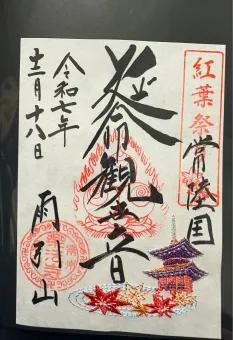 紅葉祭
常陸国
延命觀世音
雨引山
令和七年
十一月十八日